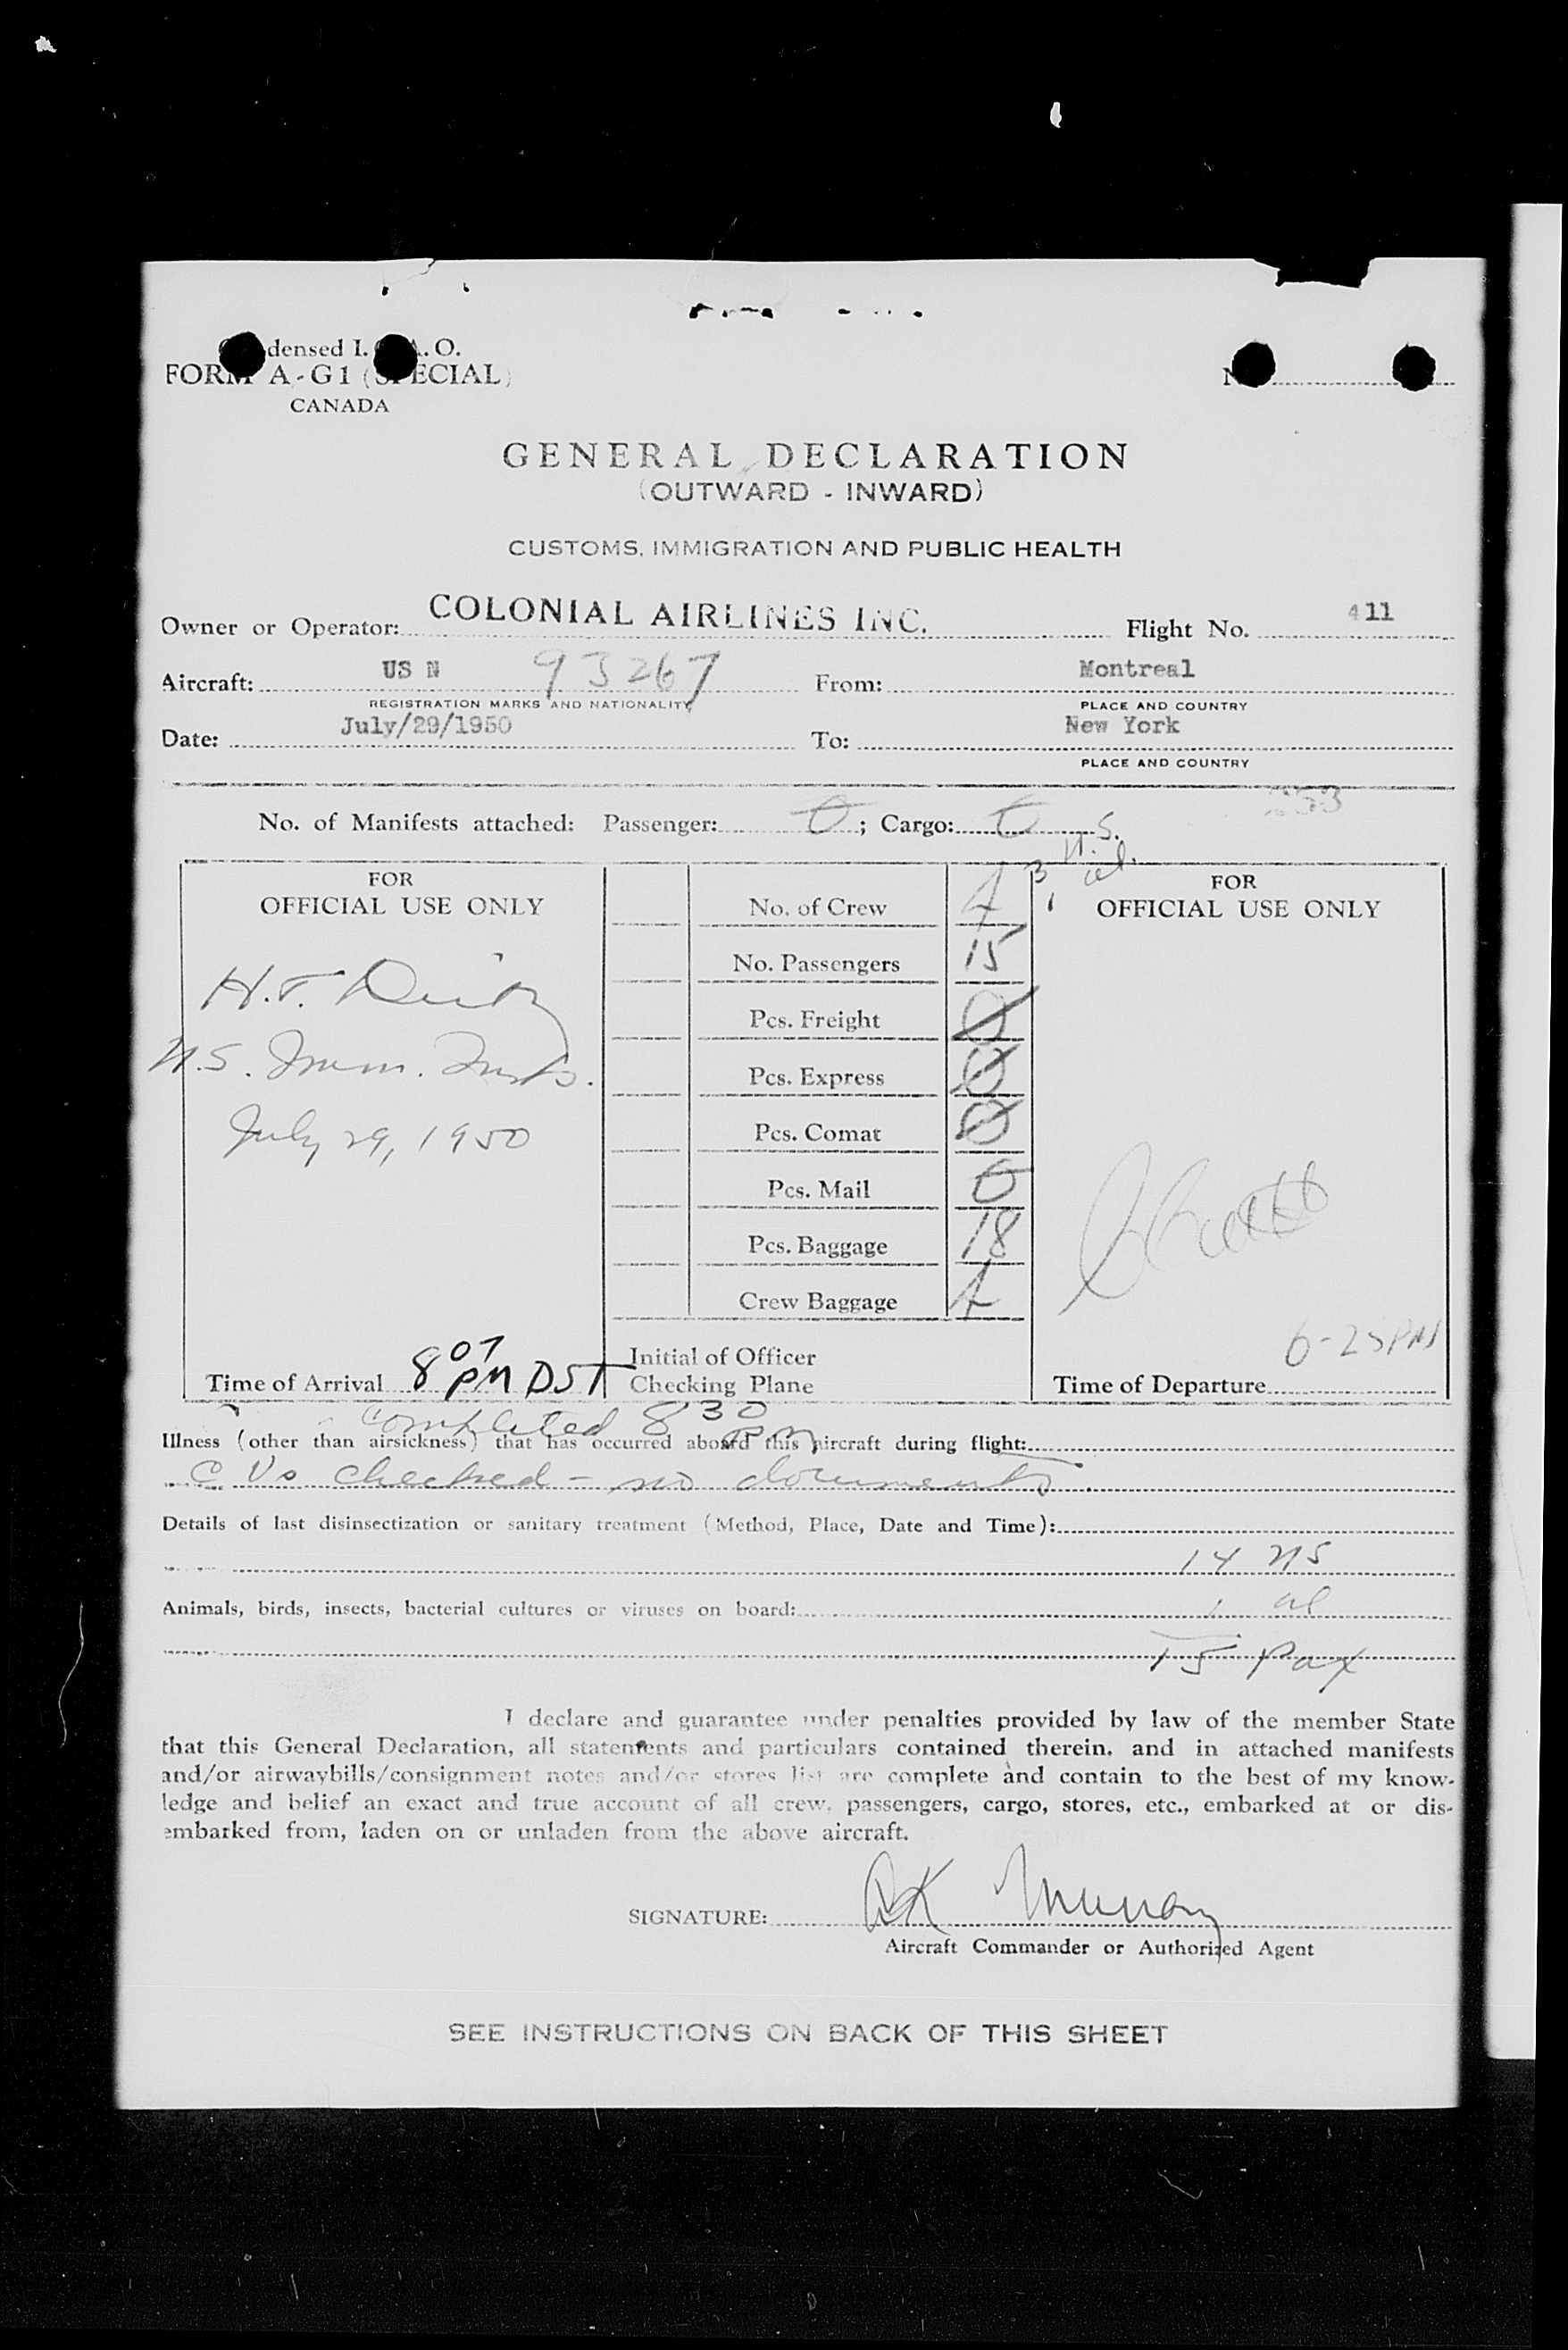 densed I. A. O.
FORM A-G1 (SPECIAL)
CANADA
GENERAL DECLARATION
(OUTWARD - INWARD)
CUSTOMS, IMMIGRATION AND PUBLIC HEALTH
Owner or Operator: COLONIAL AIRLINES INC. Flight No. 411
Aircraft: US N 93267 From: Montreal
REGISTRATION MARKS AND NATIONALITY PLACE AND COUNTRY
Date: July/29/1950 To: New York
PLACE AND COUNTRY
No. of Manifests attached: Passenger: 0; Cargo: 0
FOR OFFICIAL USE ONLY
H.T.
July 29, 1950
Time of Arrival 8 07 PM DST
No. of Crew 4
3
1 al.
No. Passengers 15
Pcs. Freight 0
Pcs. Express 0
Pcs. Comat 0
Pcs. Mail 0
Pcs. Baggage 18
Crew Baggage 4
Initial of Officer
Checking Plane
FOR
OFFICIAL USE ONLY
6-25 PM
Time of Departure
completed 8 30 pm
Illness (other than airsickness) that has occurred aboard this aircraft during flight:
C Vs checked - no documents.
Details of last disinsectization or sanitary treatment (Method, Place, Date and Time):
14 US
Animals, birds, insects, bacterial cultures or viruses on board:
1 al
15 pax
I declare and guarantee under penalties provided by law of the member State
that this General Declaration, all statements and particulars contained therein, and in attached manifests
and/or airwaybills/consignment notes and/or stores list are complete and contain to the best of my know-
ledge and belief an exact and true account of all crew, passengers, cargo, stores, etc., embarked at or dis-
embarked from, laden on or unladen from the above aircraft.
SIGNATURE: Murray
Aircraft Commander or Authorized Agent
SEE INSTRUCTIONS ON BACK OF THIS SHEET